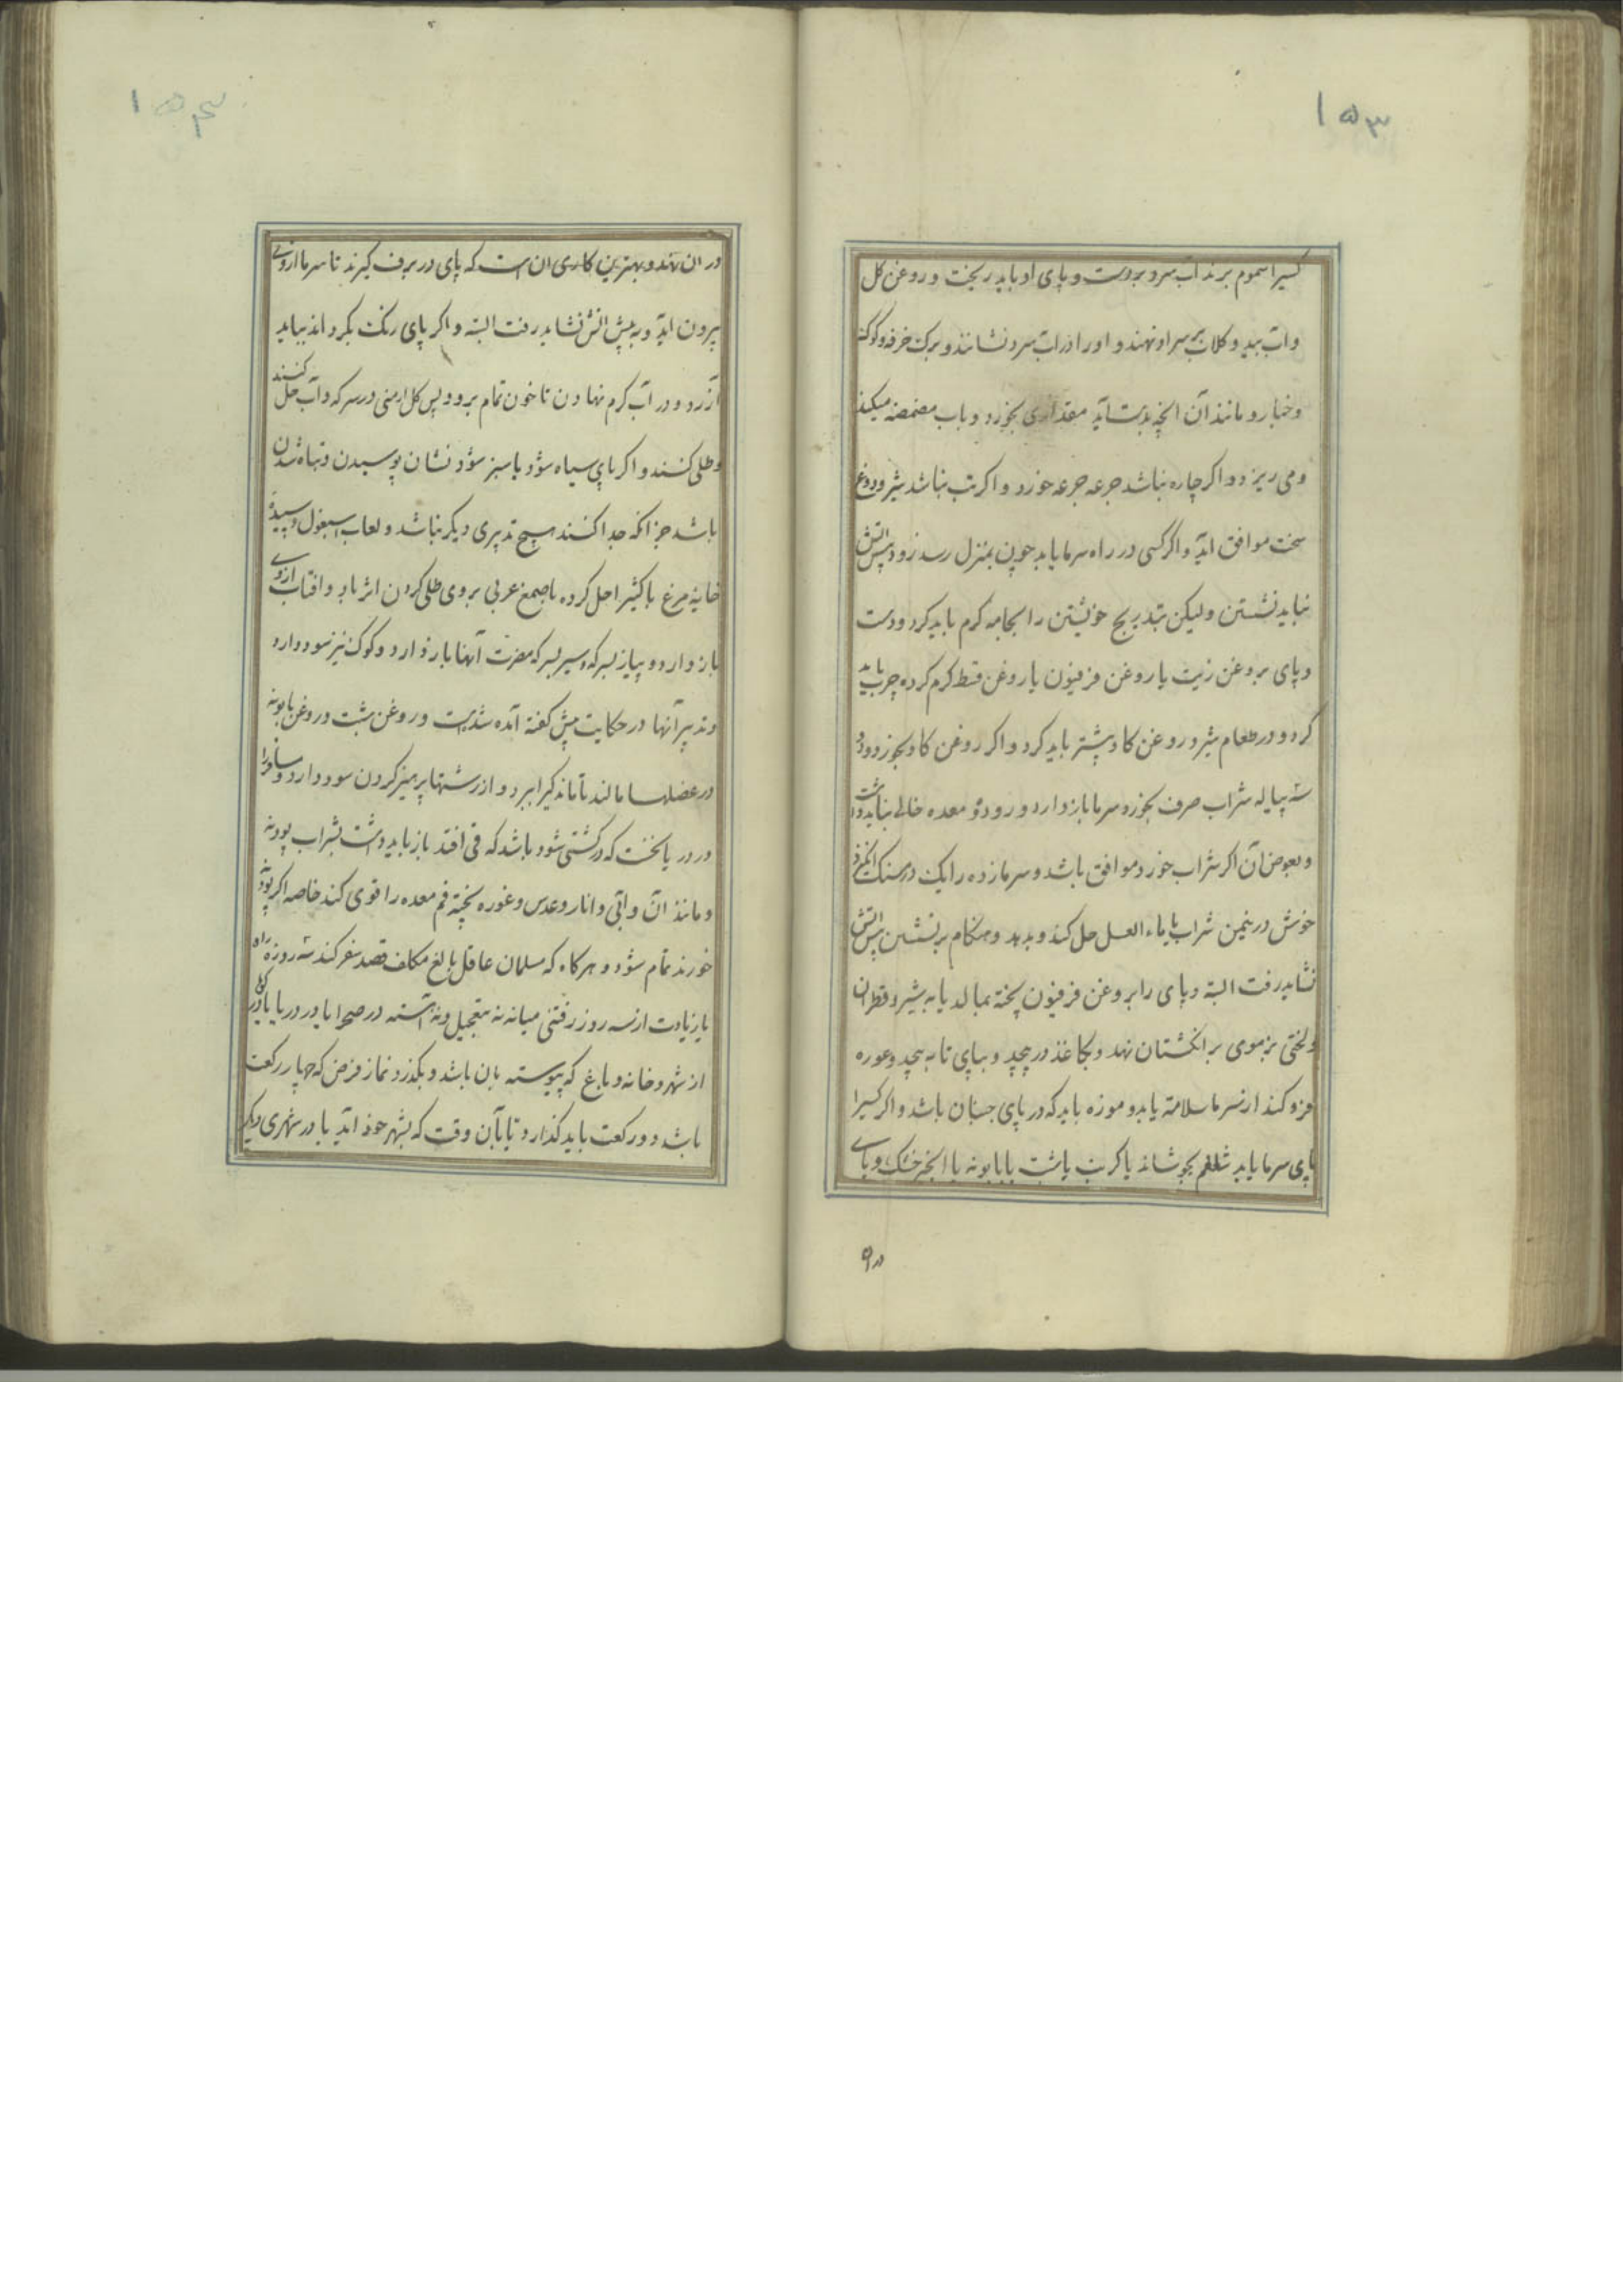 ۱۵۳
کسیرا سموم برند آب سرد بر دست و پای او باید ریخت و روغن کل
و آب بید و کلاب بر سر او نهند و اورا در آب سرد نشانند و برک خرفه و کوک
و خیار و مانند آن انچه بدست آید مقداری بخورد و باب مضمضه میکند
و می ریزد و اکر چاره نباشد جرعه جرعه خورد و اکر تب نباشد شیر و دوغ
سخت موافق آید و اگر کسی در راه سرما یابد چون بمنزل رسد زود پیش آتش
نباید نشستن و لیکن بتدریج خویشتن را بجامه کرم باید کرد و دست
و پای بروغن زیت یا روغن فرفیون یا روغن قسط کرم کرده چرب باید
کرد و در طعام شیر و روغن کاو بیشتر باید کرد و اکر روغن کاو بخورد و دو
سه پیاله شراب صرف بخورد سرما باز دارد و روده و معده خالی نباید داشت
و بعوض آن اکر شراب خورد موافق باشد و سرما زده را یک درمسنک انکزد
خوش در پنجمن شراب یا ماء العسل حل کند و بدهد و هنکام برنشستن پیش آتش
نشاید رفت البته و پای را بروغن فرفیون پخته بمالد یا به شیر و قطران
و لختی بزموی بر انکشتان نهد و بکاغذ در پیچد و بپای تابه پیچد و موزه
فرو کند از سرما سلامة یابد و موزه باید که در پای جنبان باشد و اکر کسیرا
پای سرما یابد شلغم بجوشاند یا کرنب یا شبت یا بابونه یا انجیر خشک و پای
در
۱۵۴
در آن نهند و بهترین کاری آن است که پای در برف کیرند تا سرما از وی
بیرون آید و به پیش آتش نشاید رفت البته و اکر پای رنک بکرداند بباید
آزرد و در آب کرم نهادن تا خون تمام برود پس کل ارمنی در سرکه و آب حل کنند
و طلی کنند و اکر پای سیاه شود یا سبز شود نشان پوسیدن و تباه شدن
باشد جز انکه جدا کنند هیچ تدبیری دیکر نباشد و لعاب اسبغول و سپیده
خایهٔ مرغ با کثیرا حل کرده با صمغ عربی بروی طلی کردن اثر باد و افتاب از وی
باز دارد و پیاز بسرکه و سیر بسرکه مضرت آبها باز دارد و کوک نیز سود دارد
و تدبیر آنها در حکایت پیش کفته آمده شدست و روغن شبت و روغن بابونه
در عضلها مالند تا ماندکی را ببرد و از ترشیها پرهیز کردن سود دارد و مسافر را
در دریا نخست که در کشتی شود باشد که قی افتد باز باید داشت بشراب پودنه
و مانند آن و آبی و انار و عدس و غوره پخته فم معده را قوی کند خاصه اکر پودنه
خورند تمام شود و هر کاه که مسلمان عاقل بالغ مکلف قصد سفر کند سه روزه راه
یا زیادت از سه روز رفتنی میانه نه بتعجیل و نه آهسته در صحرا یا در دریا یا در کوه
از شهر و خانه و باغ که پیوسته بان باشد و بکذرد نماز فرض که چهار رکعت
باشد دو رکعت باید کذارد تا بآن وقت که بشهر خود آید یا در شهری دیکر